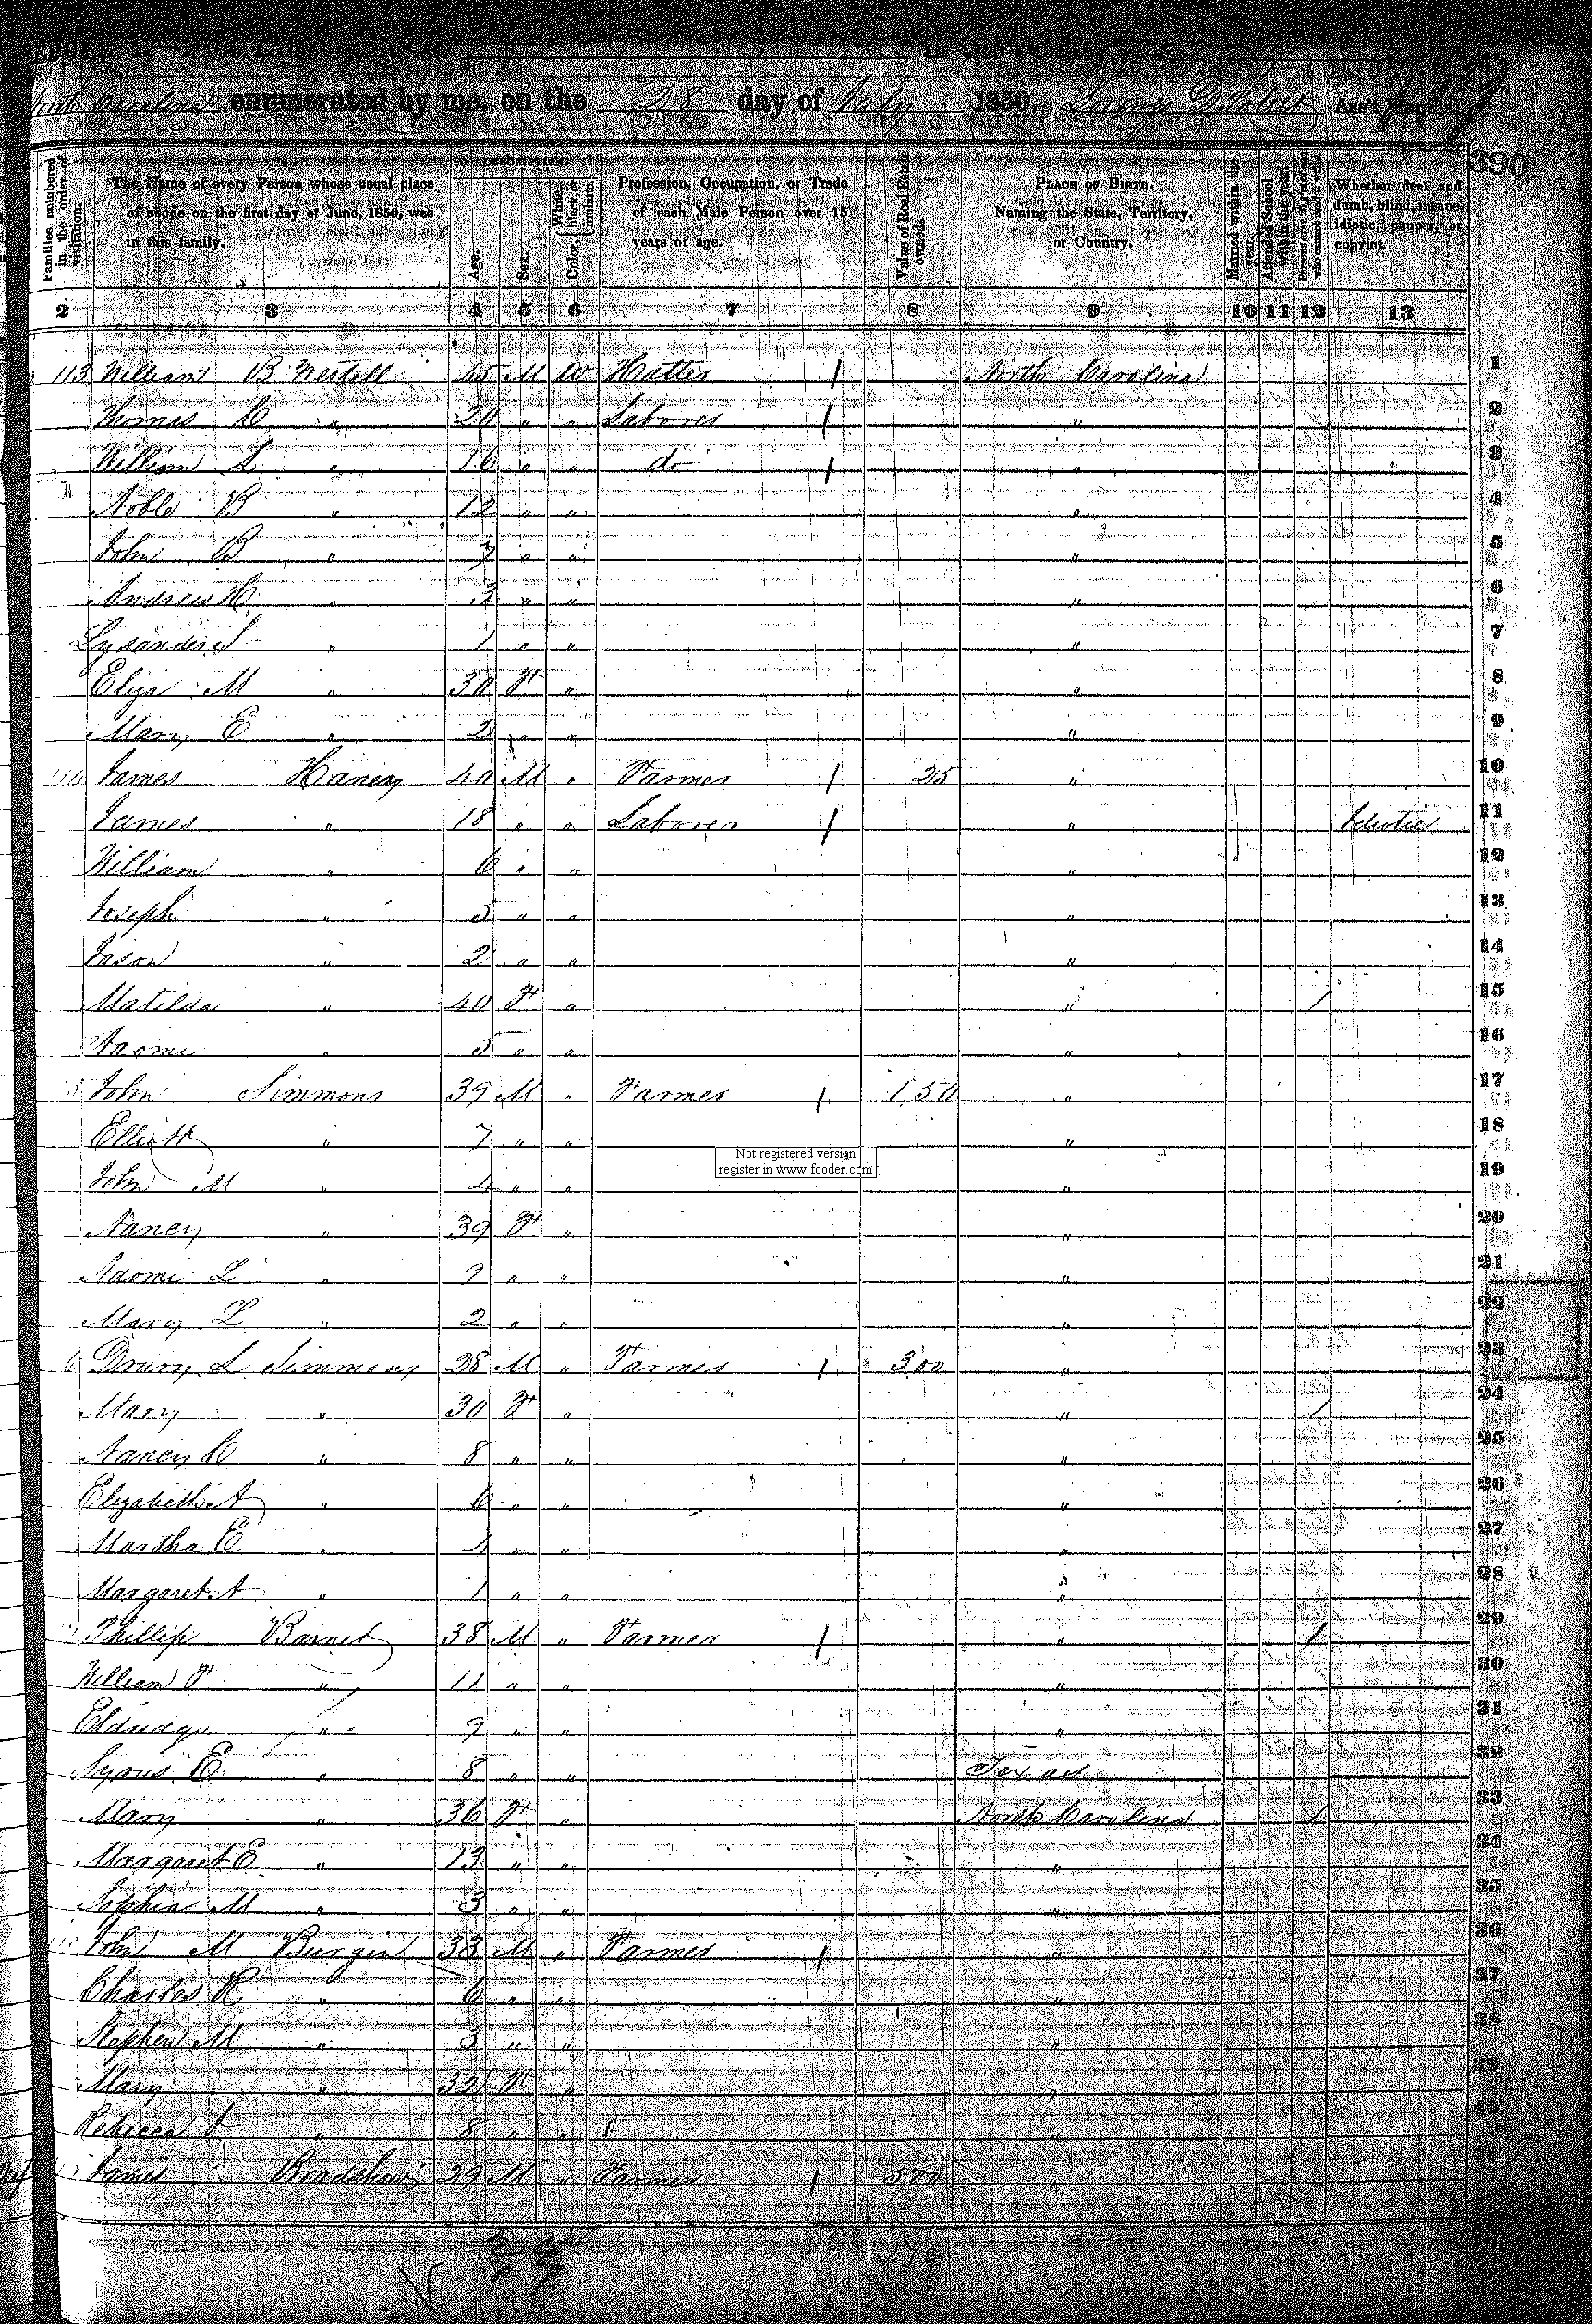 Carolina enumerated by me, on the 28 day of July 1850. Ass't
390
Families, numbered in the order of visitation.
The Name of every Person whose usual place of abode on the first day of June, 1850, was in this family.
DESCRIPTION.
Age.
Sex.
Color, White, black, or mulatto.
Profession, Occupation, or Trade of each Male Person over 15 years of age.
Value of Real Estate owned.
PLACE OF BIRTH. Naming the State, Territory, or Country.
Married within the year.
Attended School within the year.
Whether deaf and dumb, blind, insane, idiotic, pauper, or convict.
2 3 4 5 6 7 8 9 10 11 12 13
113 William B 45 M W Hatter / North Carolina 1
Thomas " 20 " " Laborer / " 2
William L " 16 " " do / " 3
Noble B " 12 " " " 4
John B " 7 " " " 5
Andrew H " 3 " " " 6
Lysander S " 1 " " " 7
Eliza M " 30 F " " 8
Mary E " 2 " " " 9
James Haney 40 M " Farmer / 25 " 10
James " 18 " " Laborer / " Idiotic 11
William " 6 " " " 12
Joseph " 5 " " " 13
Jason " 2 " " " 14
Matilda " 40 F " " / 15
Naomi " 5 " " " 16
John Simmons 39 M " Farmer / 150 " 17
Elliott " 7 " " " 18
Not registered version
register in www.fcoder.com
John M " 4 " " " 19
Nancy " 39 F " " 20
Naomi L " 9 " " " 21
Mary L " 2 " " " 22
6 Drury L Simmons 28 M " Farmer / 300 " 23
Mary " 30 F " " / 24
Nancy C " 8 " " " 25
Elizabeth A " 6 " " " 26
Martha E " 4 " " " 27
Margaret A " 1 " " " 28
Phillip Barnet 38 M " Farmer / " / 29
William F " 11 " " " 30
" 9 " " " 31
E " 8 " " Texas 32
Mary " 36 F " North Carolina / 33
Margaret E " 13 " " " 34
Sophia M " 3 " " " 35
John M Burgin 33 M " Farmer / " 36
Charles R " 6 " " " 37
Stephen M " 3 " " "
Mary " 32 F " "
Rebecca " 8 " " "
James Bradshaw 29 M " Farmer / 500